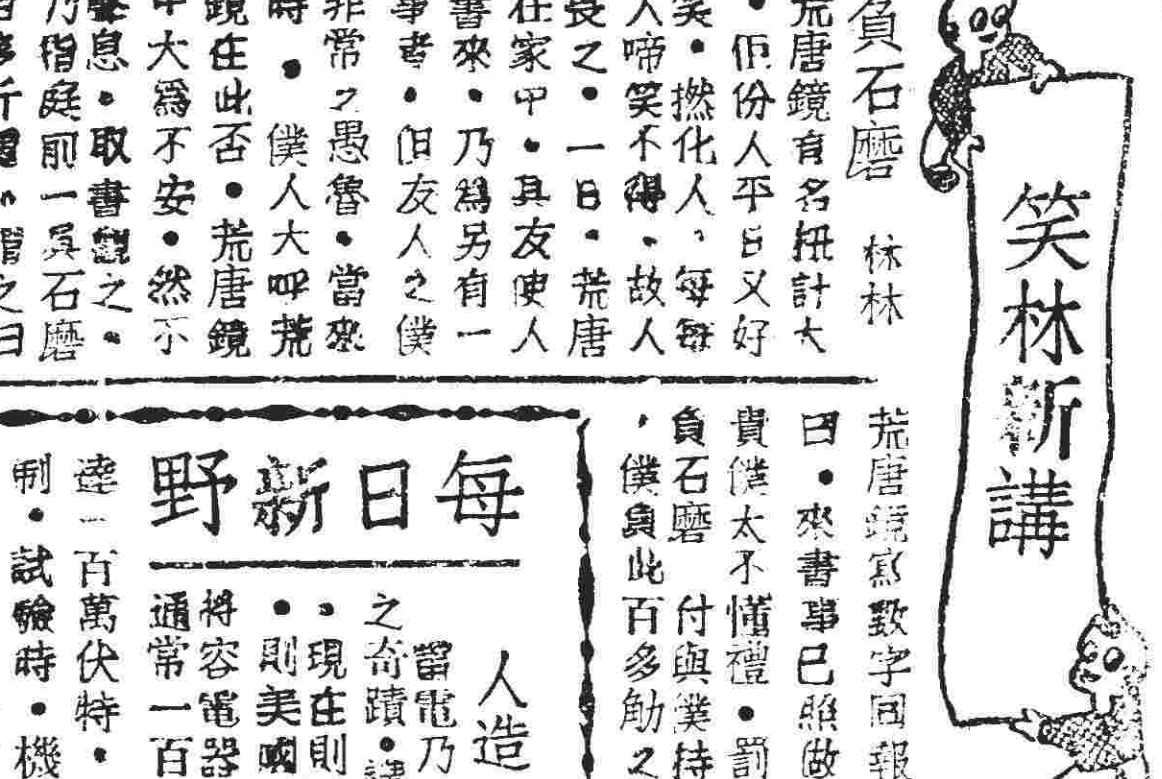 笑林新講
負石磨 林林
荒唐鏡有名扭計大
佢份人平日又好
笑・撚化人、每每
人啼笑不得・故人
長之・一日・荒唐
在家中・其友使人
書來・乃爲另有一
事者・但友人之僕
非常之愚魯・當來
時・僕人大呼荒
鏡在此否・荒唐鏡
中大爲不安・然不
聲息・取書觀之・
乃指庭前一具石磨
百多斤
之曰
荒唐鏡寫數字回報
曰・來書事已照做
貴僕太不懂禮・罰
負石磨 付與僕持
，僕負此百多觔之
每日新野
人造
當電乃
之奇蹟・
、現在則
・則美國
將容電器
通常一百
達一百萬伏特・
制・試驗時・機